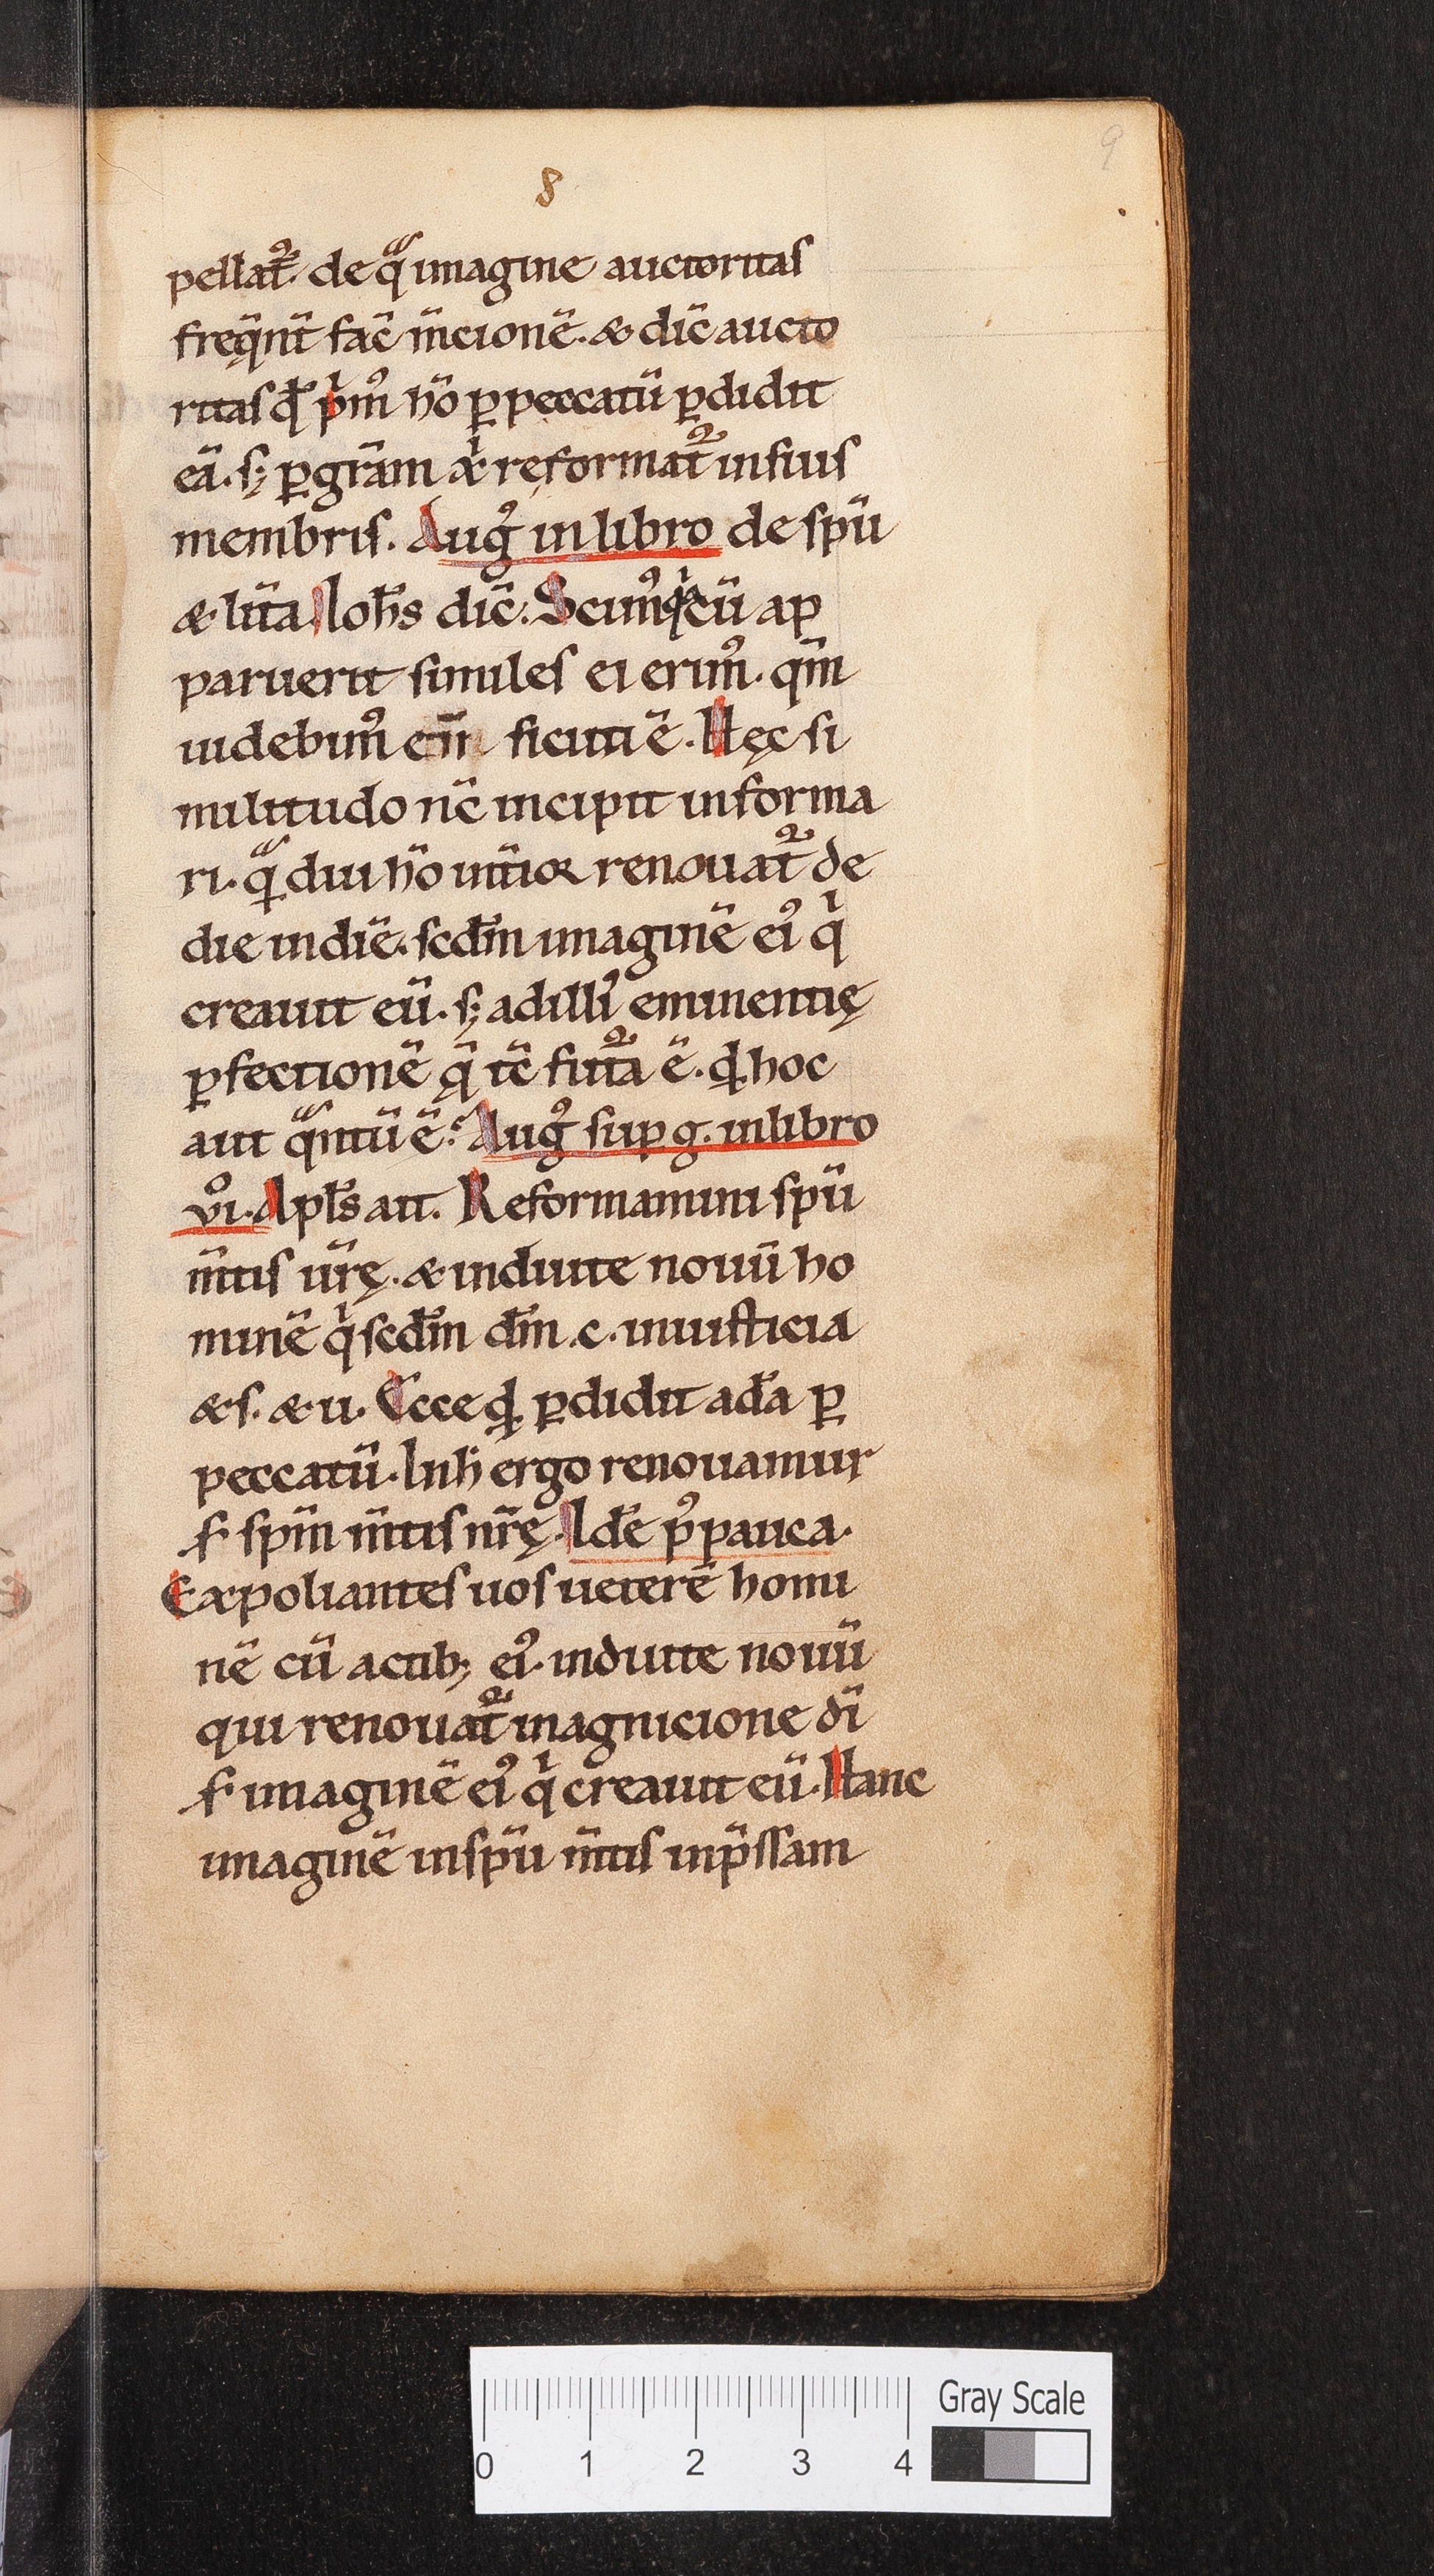 8
9
pellat᷑. de qͣ imagine auctoritas
freq̄nt̄ fac̄ m̄cionē. & dic̄ aucto
ritas qd̄ pͥmꝰ hō ꝑ peccatū ꝑdidit
eā. sꝫ ꝑ grām xͥ reformat᷑ in suis
membris. Augꝰ in libro de spū
& lit̄a Ioh̄s dic̄. Scimꝰ qͥ cū ap
paruerit similes ei erimꝰ. qm̄
uidebimꝰ eū sicuti ē. Hęc si
militudo nc̄ incipit informa
ri. qͣdiu hō int̄ior renouat᷑ de
die in diē. scd̄m imaginē eiꝰ qͥ
creauit eū. sꝫ ad illiꝰ eminentię
ꝑfectionē q̄ tc̄ fut᷑a ē. qd̄ hoc
aut qͣntū ē? Augꝰ sup g. in libro
vıº. Apl̄s ait. Reformamini spū
m̄tis ūrę. & induite nouū ho
minē qͥ scd̄m dm̄ .c. in iusticia
& s. & u. Ecce qd̄ ꝑdidit ada ꝑ
peccatū. In h̄ ergo renouamur
s̄ spm̄ m̄tis nr̄ę. Idē pꝰ pauca.
Expoliantes uos ueterē homi
nē cū actibꝫ eiꝰ. induite nouū
qui renouat᷑ in agnicione dī
s̄ imaginē eiꝰ qͥ creauit eū. Hanc
imaginē in spū m̄tis inp̄ssam
0 1 2 3 4
Gray Scale